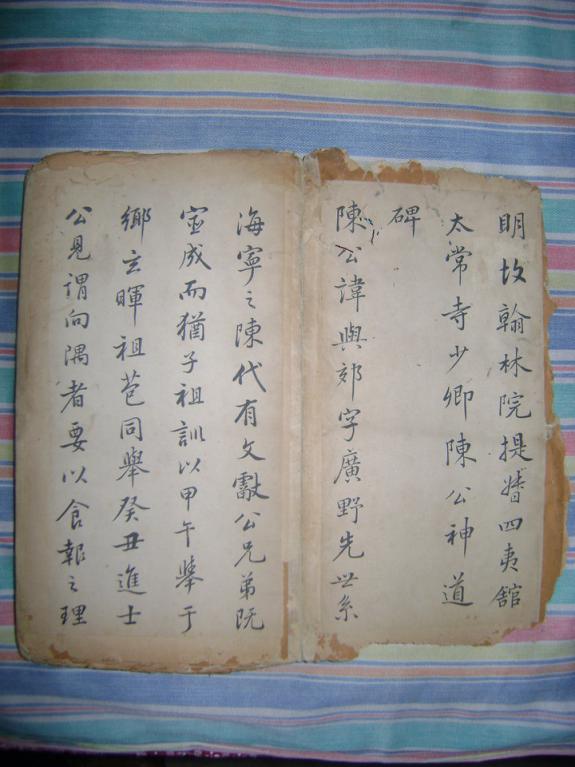 明故翰林院提督四夷舘
太常寺少卿陳公神道
碑
陳公諱與郊字廣野先世系
海寧之陳代有文獻公兄弟既
宦成而猶子祖訓以甲午舉于
鄉玄暉祖苞同舉癸丑進士
公見謂向隅者要以食報之理